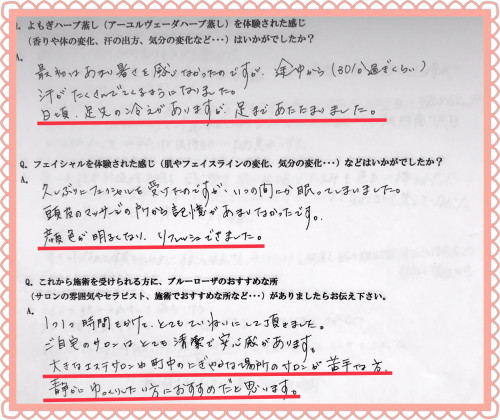 Q. よもぎハーブ蒸し（アーユルヴェーダハーブ蒸し）を体験された感じ
（香りや体の変化、汗の出方、気分の変化など・・・）はいかがでしたか？
A.
最初はあまり暑さを感じなかったのですが、途中から（30分過ぎくらい）
汗がたくさんでてくるようになりました。
日頃、足先の冷えがありますが、足まであたたまりました。
Q. フェイシャルを体験された感じ（肌やフェイスラインの変化、気分の変化・・・）などはいかがでしたか？
A.
久しぶりにフェイシャルを受けたのですが、いつの間にか眠ってしまいました。
頭皮のマッサージの時から記憶があまりなかったです。
顔色が明るくなり、リフレッシュできました。
Q. これから施術を受けられる方に、ブルーローザのおすすめな所
（サロンの雰囲気やセラピスト、施術でおすすめな所など・・・）がありましたらお伝え下さい。
A.
1つ1つ時間をかけて、とてもていねいにして頂きました。
ご自宅のサロンはとても清潔で安心感があります。
大きなエステサロンや町中のにぎやかな場所のサロンが苦手な方、
静かにゆっくりしたい方におすすめだと思います。